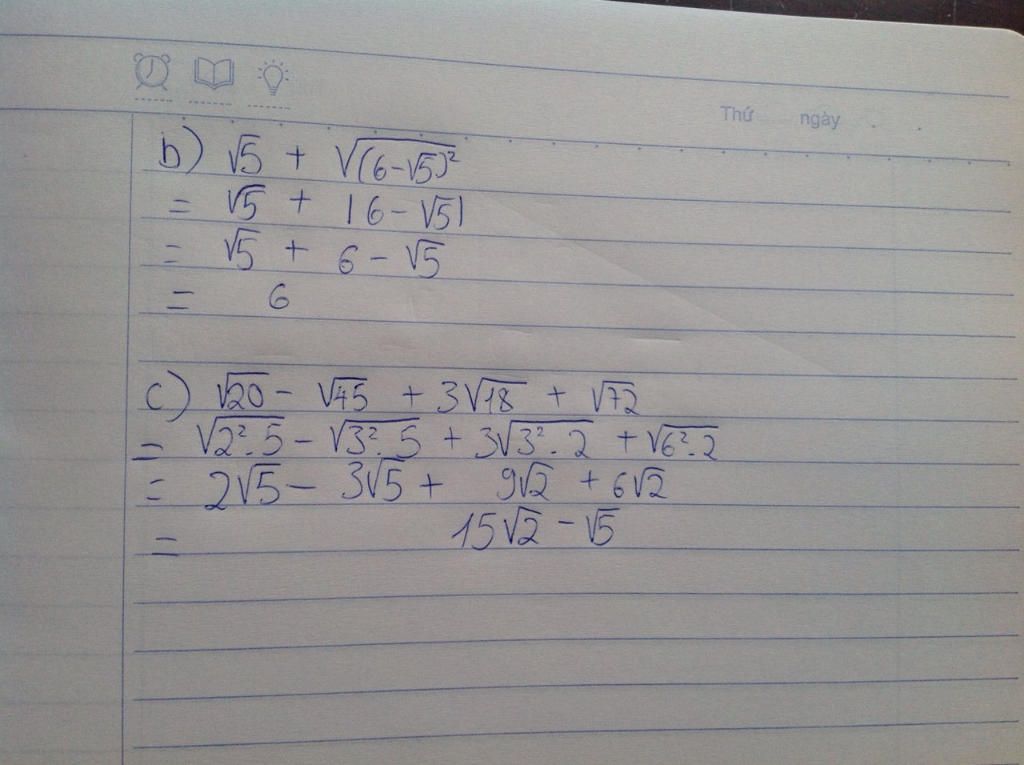 Thứ ngày
b) √5 + √(6-√5)²
= √5 + |6-√5|
= √5 + 6 - √5
= 6
c) √20 - √45 + 3√18 + √72
= √2².5 - √3².5 + 3√3².2 + √6².2
= 2√5 - 3√5 + 9√2 + 6√2
= 15√2 - √5